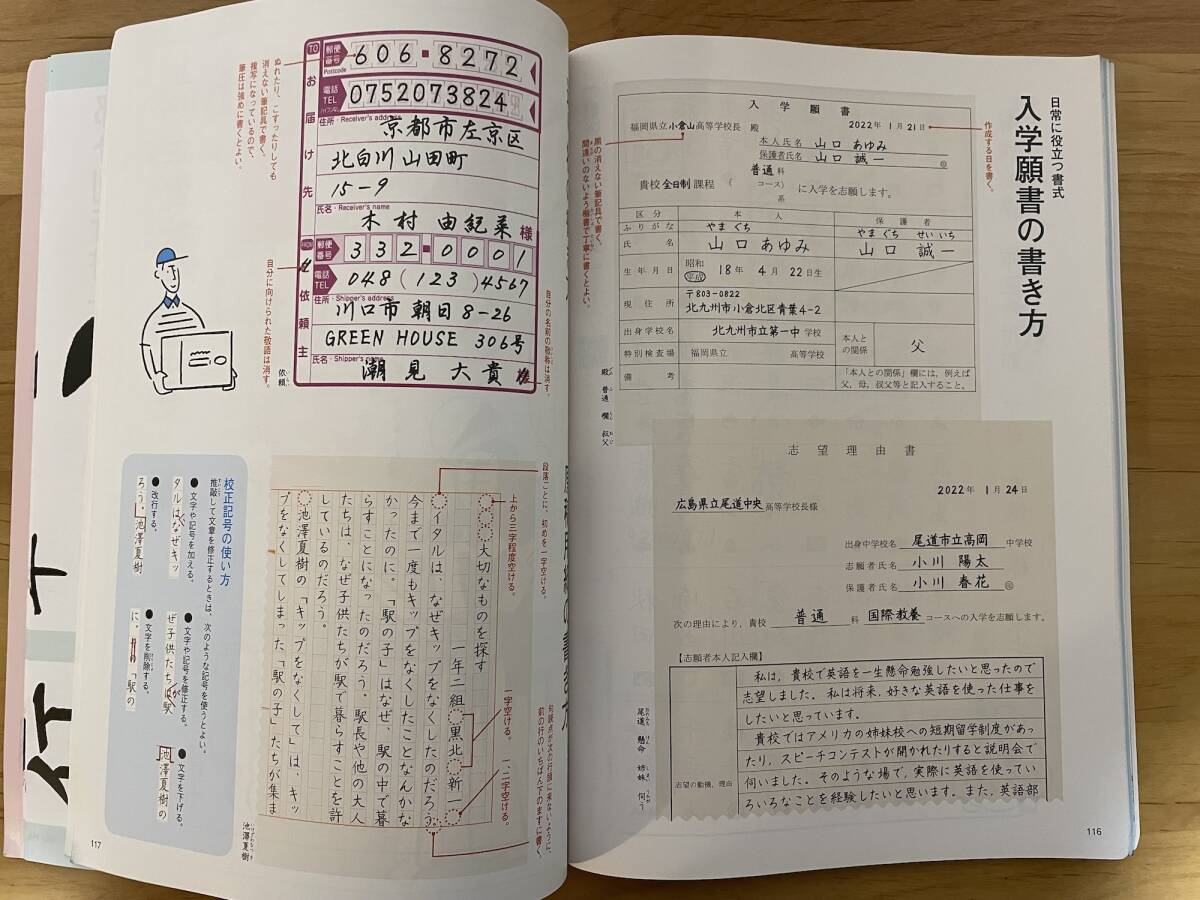 日常に役立つ書式
入学願書の書き方
入学願書
福岡県立小倉山高等学校長 殿
2022年 1月 21日
作成する日を書く。
本人氏名 山口 あゆみ
保護者氏名 山口 誠一 ㊞
黒の消えない筆記具で書く。
間違いのないよう楷書で丁寧に書くとよい。
貴校 全日制 課程 (
普通 科
コース)
系
に入学を志願します。
区分
本人
保護者
ふりがな
やま ぐち
やま ぐち せい いち
氏名
山口 あゆみ
山口 誠一
生年月日
昭和
平成
18年 4月 22日生
現住所
〒803-0822
北九州市小倉北区青葉4-2
出身学校名
北九州市立第一中 学校
本人と
の関係
父
特別検査場
福岡県立 高等学校
備考
「本人との関係」欄には,例えば
父,母,叔父等と記入すること。
殿 普通 欄 叔父
志望理由書
2022年 1月 24日
広島県立尾道中央 高等学校長様
出身中学校名 尾道市立高岡 中学校
志願者氏名 小川 陽太
保護者氏名 小川 春花 ㊞
次の理由により,貴校 普通 科 国際教養 コースへの入学を志願します。
【志願者本人記入欄】
志望の動機,理由
私は,貴校で英語を一生懸命勉強したいと思ったので
志望しました。私は将来,好きな英語を使った仕事を
したいと思っています。
貴校ではアメリカの姉妹校への短期留学制度があっ
たり,スピーチコンテストが開かれたりすると説明会で
伺いました。そのような場で,実際に英語を使ってい
ろいろなことを経験したいと思います。また,英語部
尾道 懸命 姉妹 伺う
116
TO
お届け先
郵便
番号
Postcode
606-8272
電話
TEL
0752073824
住所・Receiver's address
京都市左京区
北白川山田町
15-9
氏名・Receiver's name
木村 由紀菜 様
FROM
ご依頼主
郵便
番号
332-0001
電話
TEL
048(123)4567
住所・Shipper's address
川口市朝日8-26
GREEN HOUSE 306号
氏名・Shipper's name
潮見 大貴 様
ぬれたり、こすったりしても
消えない筆記具で書く。
複写になっているので、
筆圧は強めに書くとよい。
自分に向けられた敬語は消す。
自分の名前の敬称は消す。
依頼
段落ごとに、初めを一字空ける。
上から三字程度空ける。
一字空ける。
一、二字空ける。
句読点が次の行頭に来ないように、
前の行のいちばん下のますに書く。
大切なものを探す
一年二組 黒北 新一
イタルは、なぜキップをなくしたのだろう。
今まで一度もキップをなくしたことなんかな
かったのに。「駅の子」はなぜ、駅の中で暮
らすことになったのだろう。駅長や他の大人
たちは、なぜ子供たちが駅で暮らすことを許
しているのだろう。
池澤夏樹の「キップをなくして」は、キッ
プをなくしてしまった「駅の子」たちが集ま
池澤夏樹
校正記号の使い方
推敲して文章を修正するときは、次のような記号を使うとよい。
●文字や記号を加える。
タルはなぜキッ
●改行する。
ろう。池澤夏樹
●文字や記号を修正する。
ぜ子供たちは駅
が
●文字を削除する。
に。「駅の
●文字を下げる。
池澤夏樹の
117